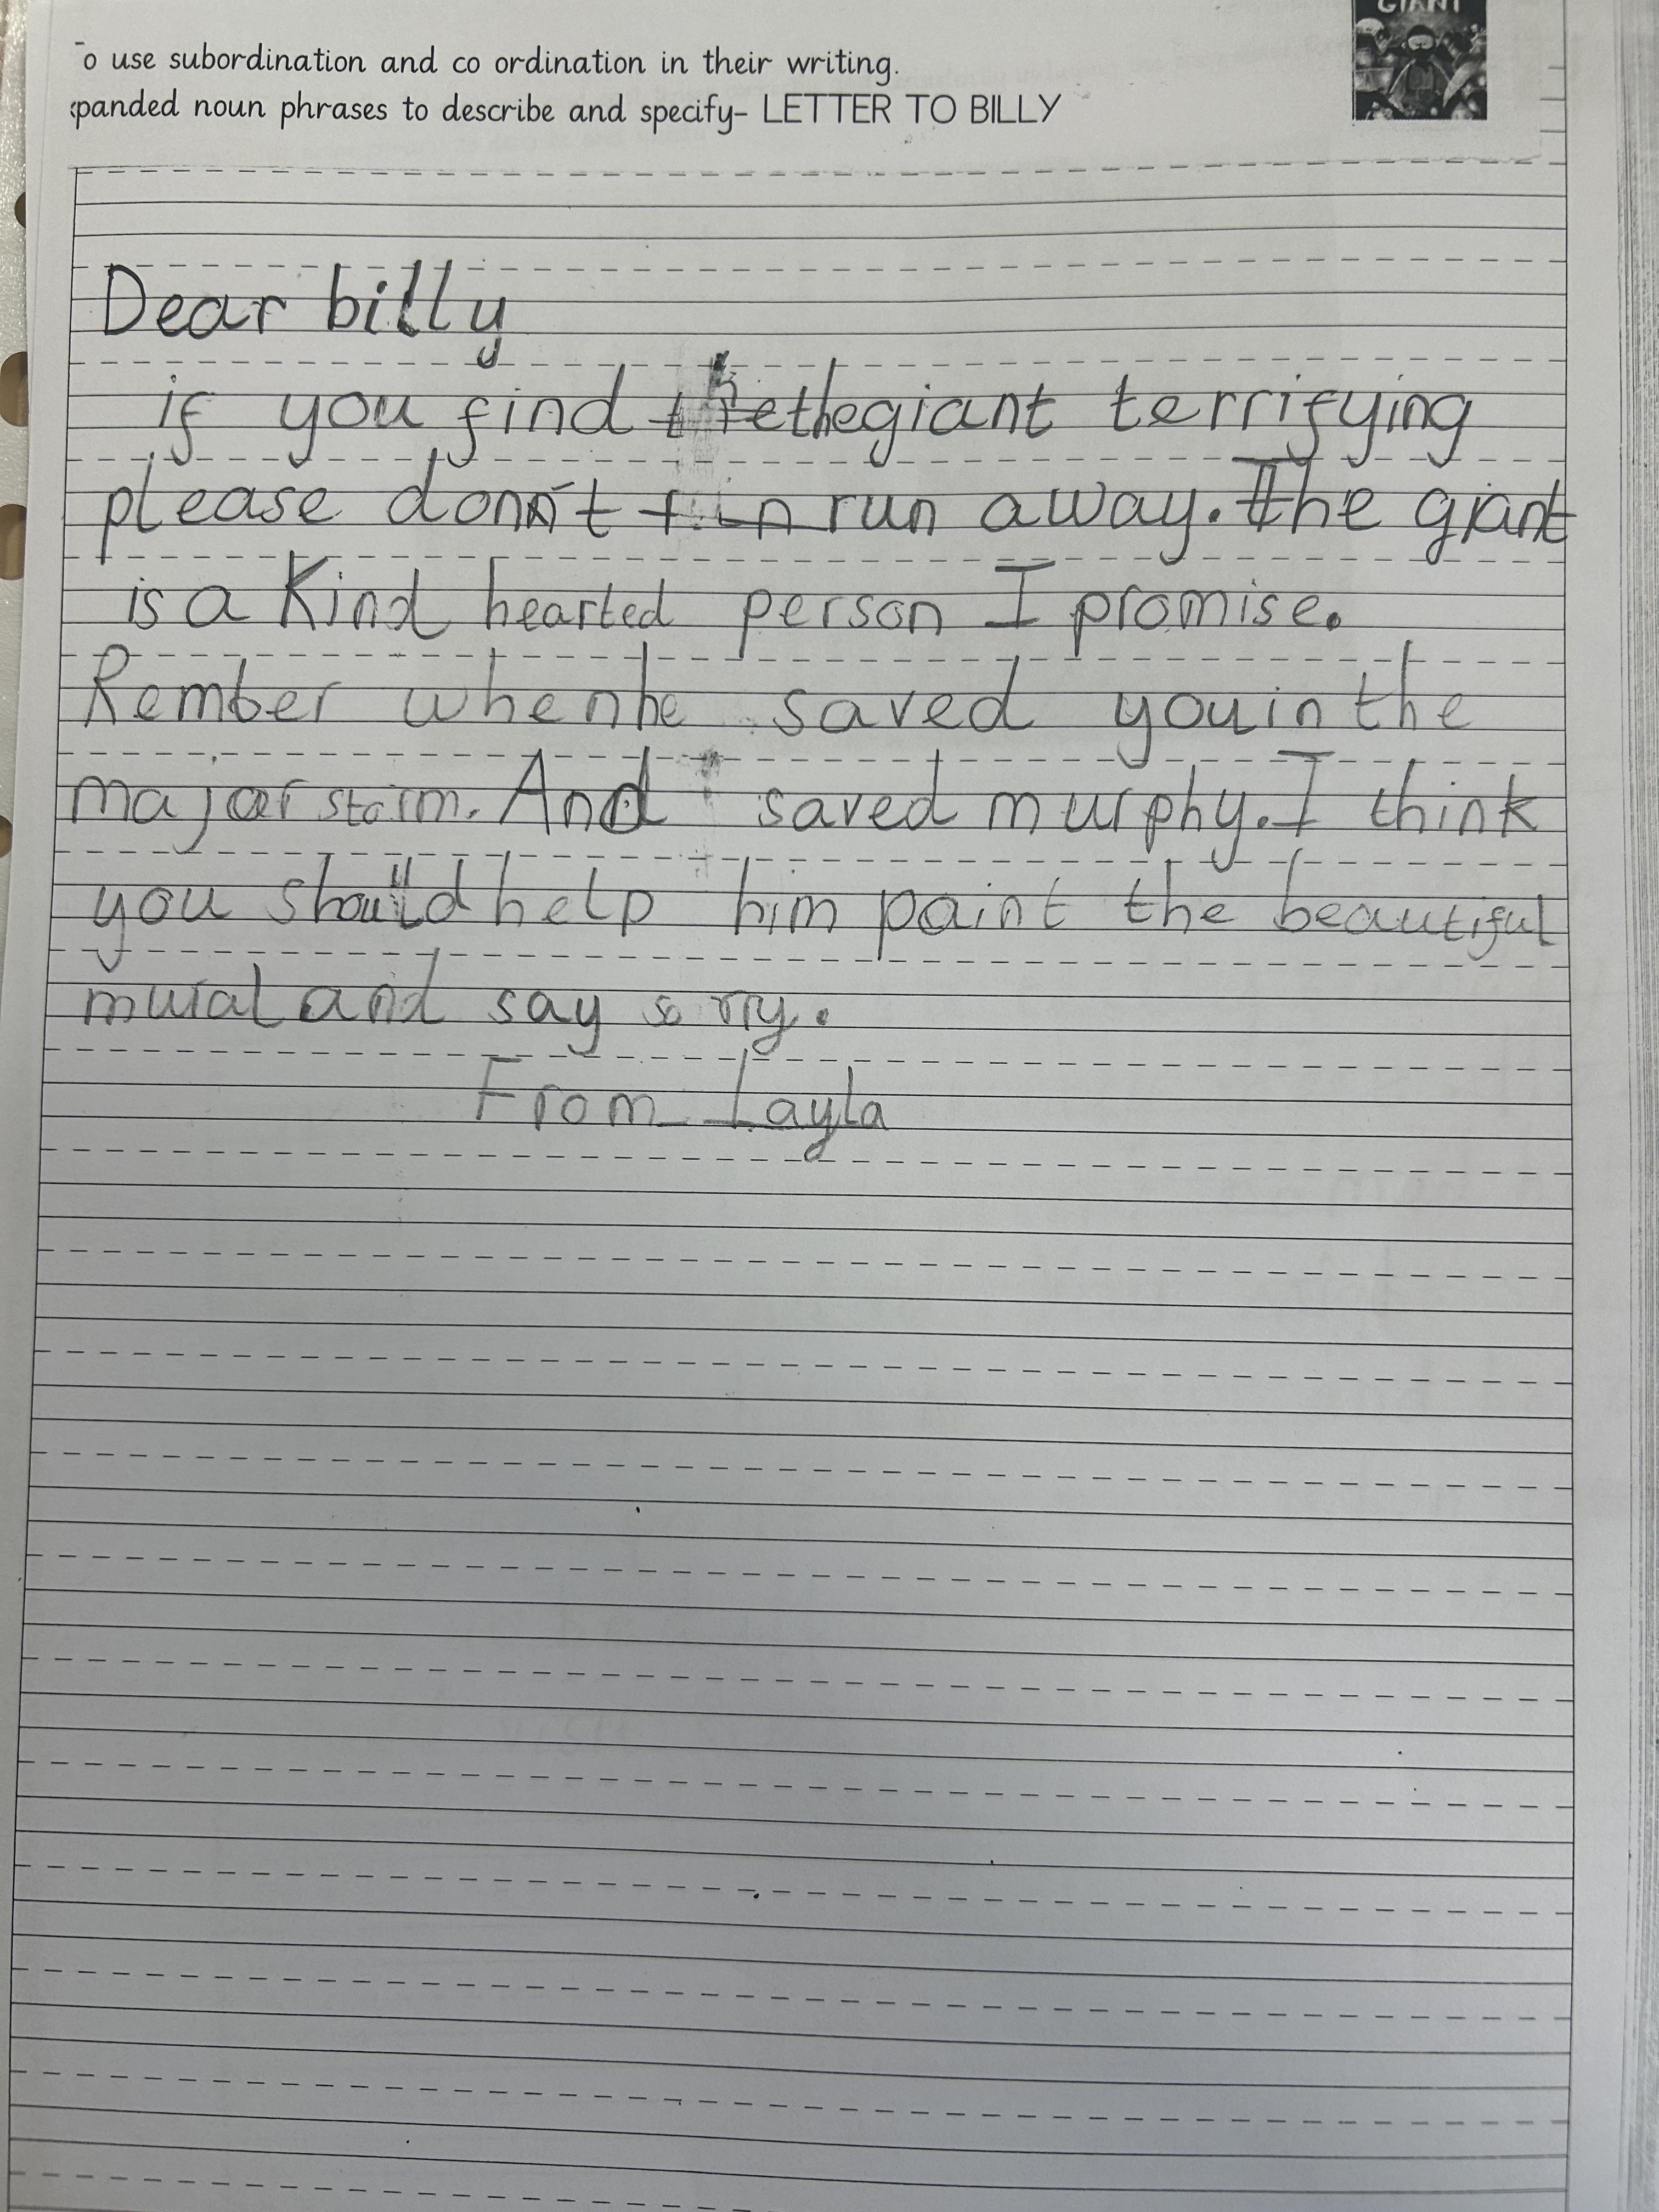 GIANT
o use subordination and co ordination in their writing.
panded noun phrases to describe and specify- LETTER TO BILLY
Dear billy
if you find the giant terrifying
please don't run away. The giant
is a Kind hearted person I promise.
Rember when he saved you in the
major storm. And saved murphy. I think
you should help him paint the beautiful
mural and say sorry.
From Layla